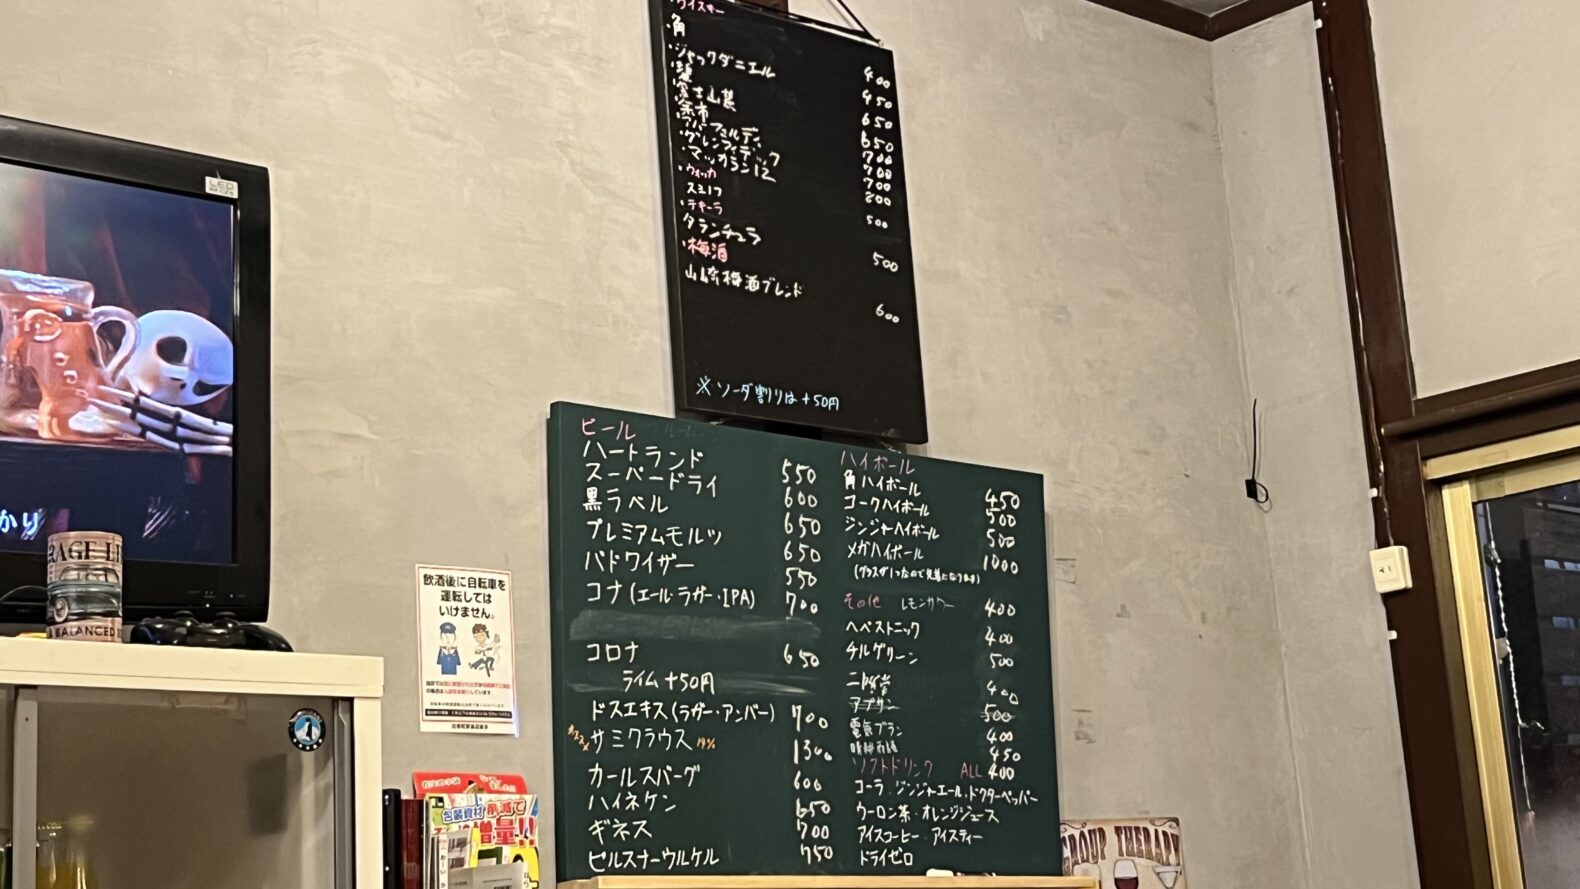 ウイスキー
・角 400
・ジャックダニエル 450
650
・富士山麓 650
・余市 700
・アバフェルディ 700
・グレンフィディック 700
・マッカラン12 800
・ウォッカ
スミノフ 500
・テキーラ
タランチュラ 500
・梅酒
山崎梅酒ブレンド 600
※ソーダ割りは+50円
ビール
ハートランド 550
スーパードライ 600
黒ラベル 650
プレミアムモルツ 650
バドワイザー 550
コナ(エール・ラガー・IPA) 700
コロナ 650
ライム+50円
ドスエキス(ラガー・アンバー) 700
オススメ サミクラウス 14% 1300
カールスバーグ 600
ハイネケン 650
ギネス 700
ピルスナーウルケル 750
ハイボール
角ハイボール 450
コークハイボール 500
ジンジャーハイボール 500
メガハイボール 1000
(グラスが1つなので先着になります)
その他 レモンサワー 400
ヘペストニック 400
チルグリーン 500
二階堂 400
アブサン 500
電気ブラン 400
450
ソフトドリンク ALL 400
コーラ・ジンジャエール・ドクターペッパー
ウーロン茶・オレンジジュース
アイスコーヒー・アイスティー
ドライゼロ
飲酒後に自転車を
運転しては
いけません。
LED
かり
RAGE LI
A BALANCED
包装資材削減で
増量!!
GROUP THERAPY